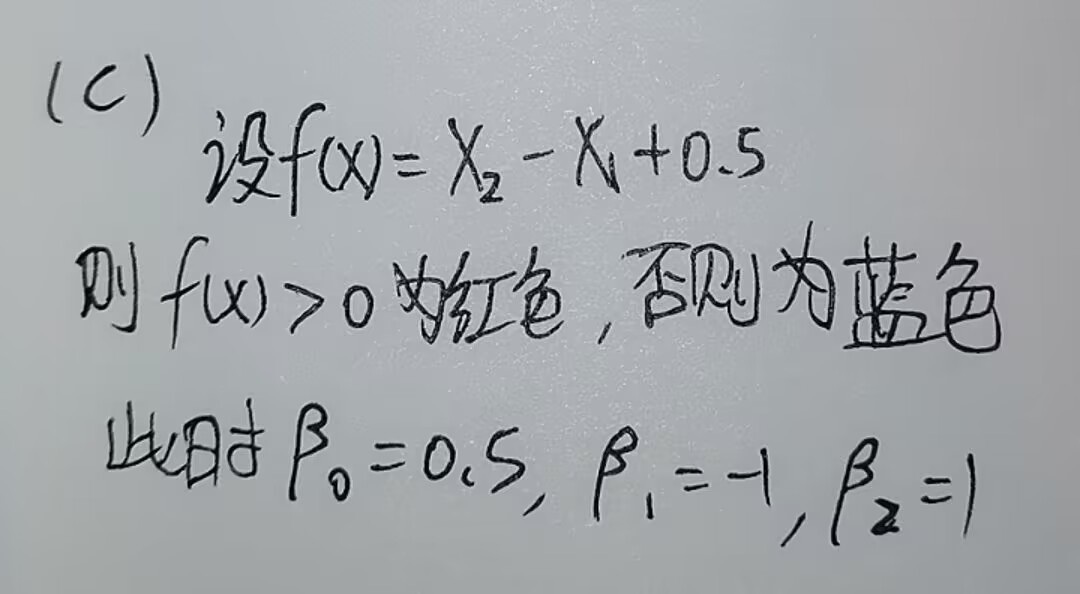 (C)
设f(X)=X₂-X₁+0.5
则f(x)>0为红色,否则为蓝色
此时β₀=0.5,β₁=-1,β₂=1